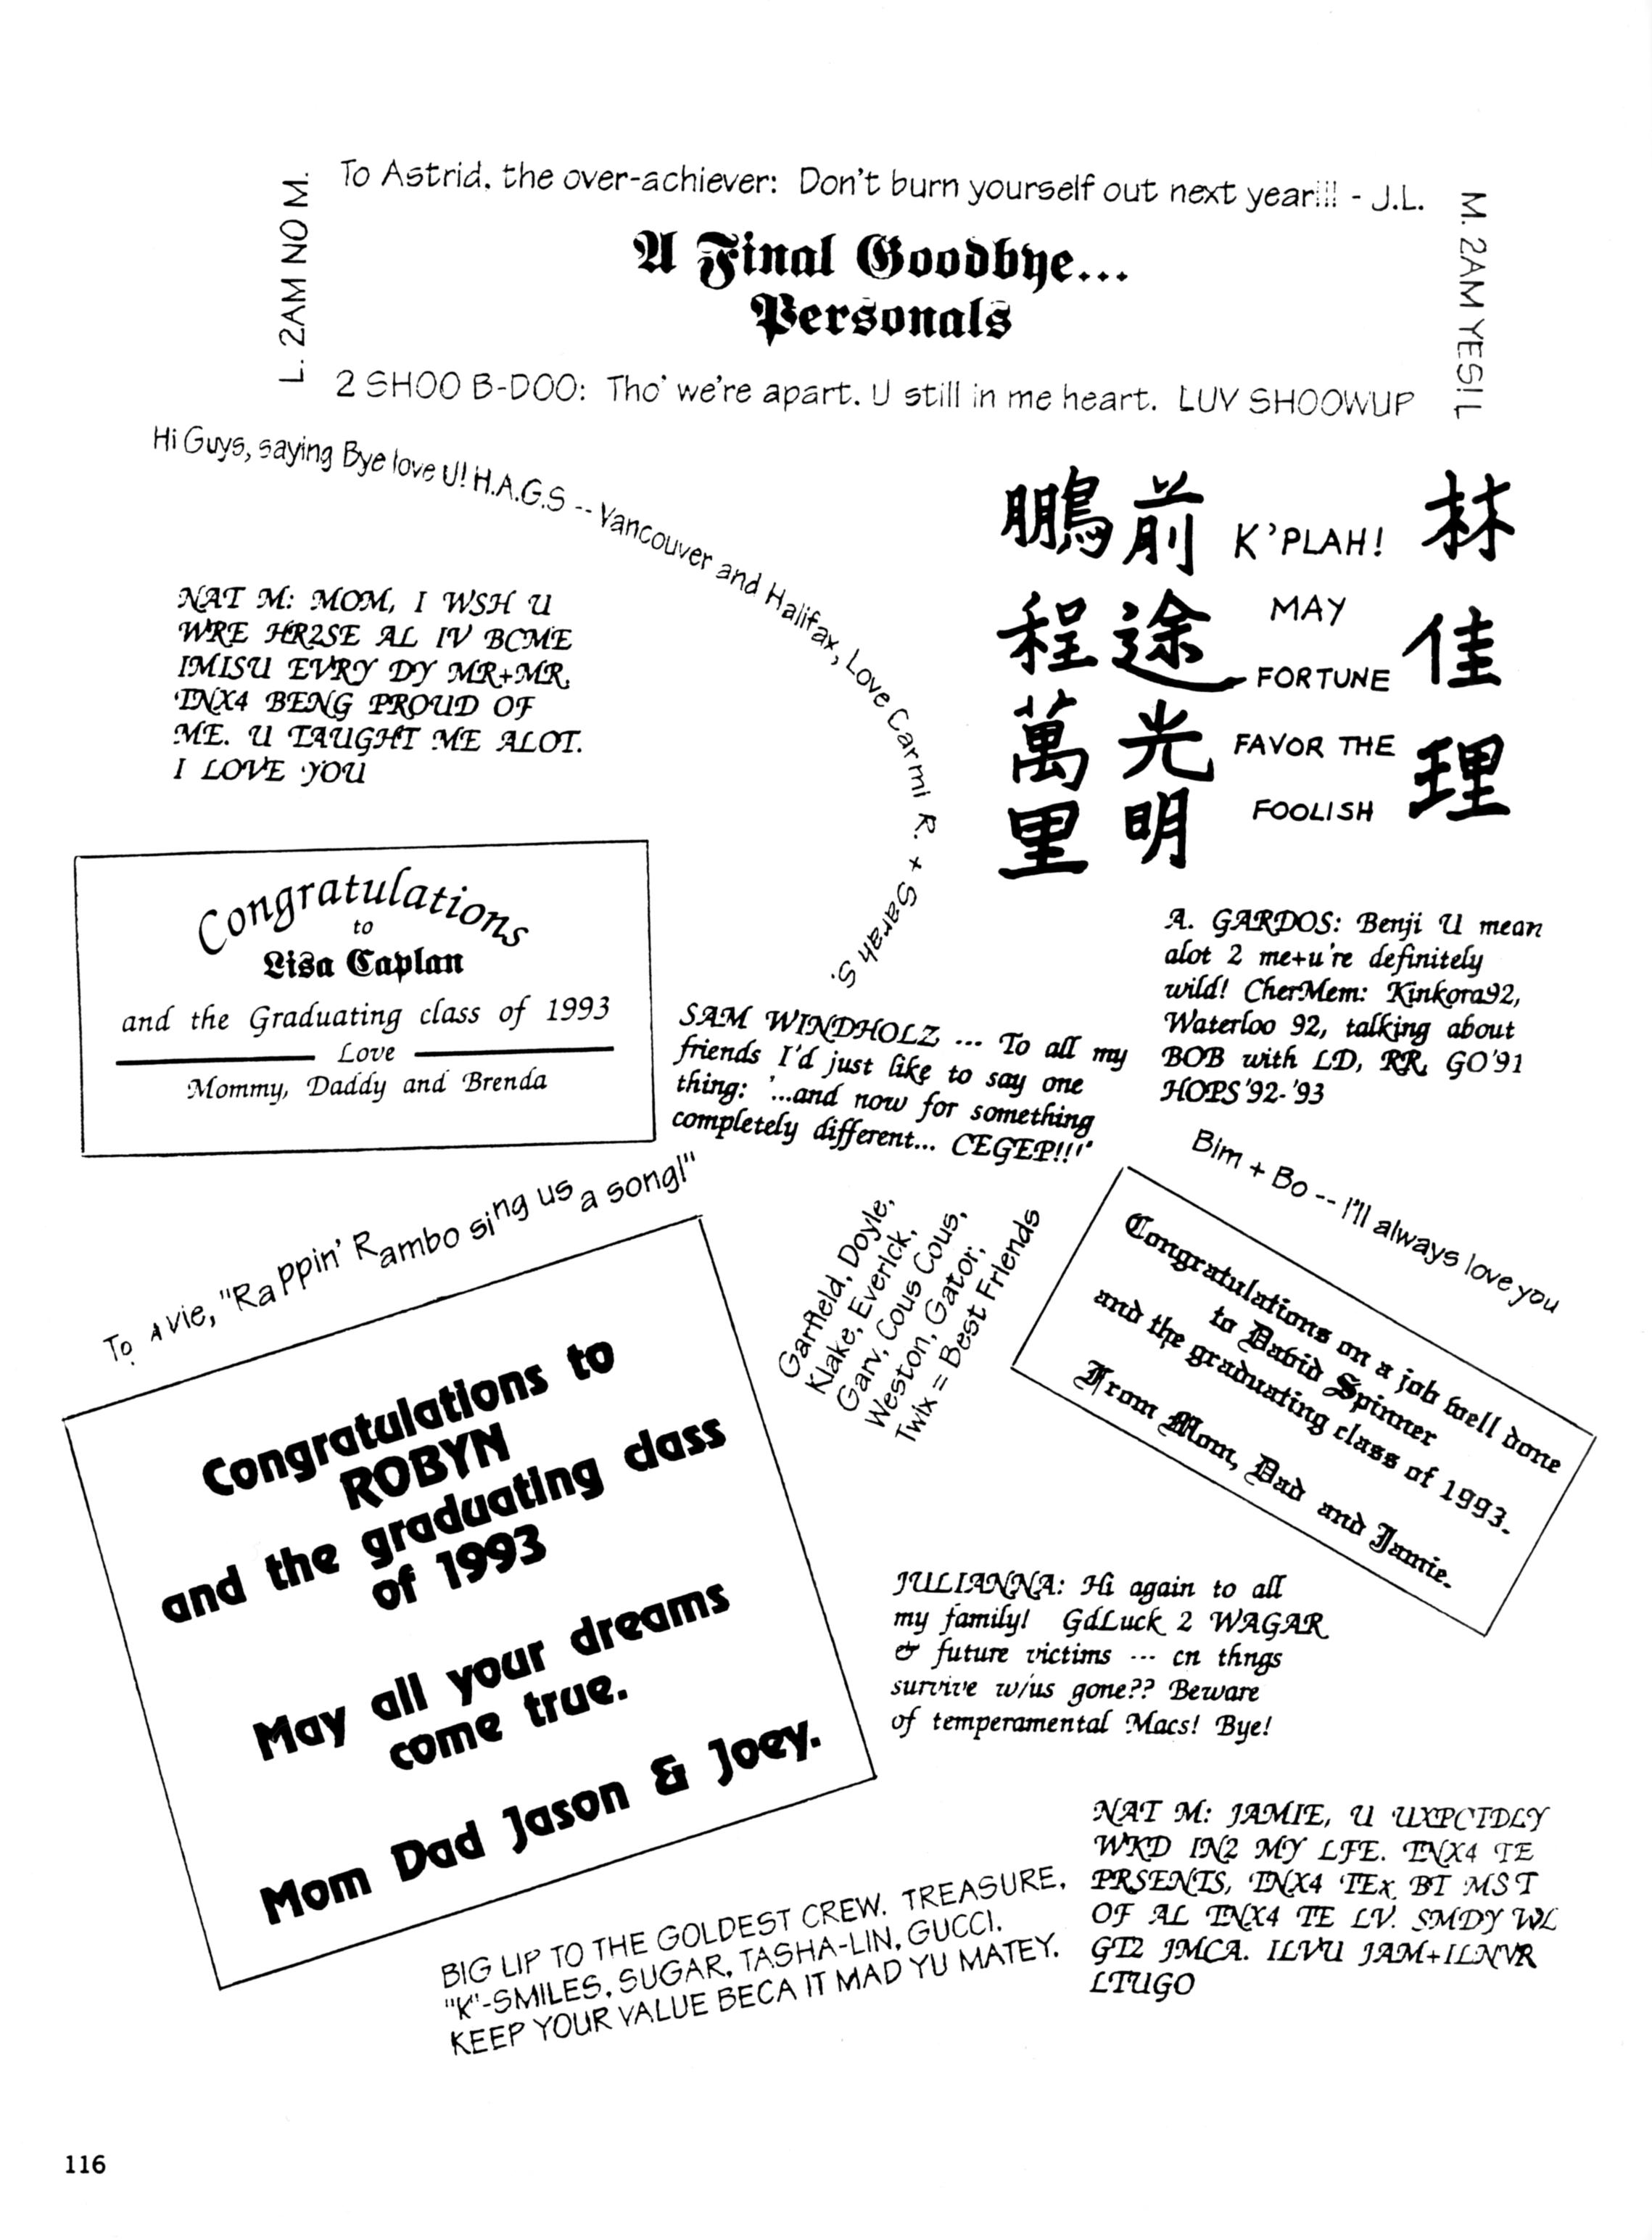 To Astrid. the over-achiever: Don't burn yourself out next year!!! - J.L.
L. 2AM NO M.
M. 2AM YES!L
A Final Goodbye...
Personals
2 SHOO B-DOO: Tho' we're apart. U still in me heart. LUV SHOOWUP
Hi Guys, saying Bye love U! H.A.G.S -- Vancouver and Halifax, Love Carmi R. + Sarah S.
鵬程萬里
前途光明
K'PLAH!
MAY
FORTUNE
FAVOR THE
FOOLISH
林佳理
NAT M: MOM, I WSH U
WRE HR2SE AL IV BCME
IMISU EVRY DY MR+MR
TNX4 BENG PROUD OF
ME. U TAUGHT ME ALOT.
I LOVE YOU
Congratulations
to
Lisa Caplan
and the Graduating class of 1993
Love
Mommy, Daddy and Brenda
A. GARDOS: Benji U mean
alot 2 me+u're definitely
wild! CherMem: Kinkora92,
Waterloo 92, talking about
BOB with LD, RR, GO'91
HOPS'92-'93
SAM WINDHOLZ ... To all my
friends I'd just like to say one
thing: '...and now for something
completely different... CEGEP!!!'
Bim + Bo -- I'll always love you
To Avie, "Rappin' Rambo sing us a song!"
Garfield, Doyle,
Klake, Everick,
Garv, Cous Cous,
Weston, Gator,
Twix = Best Friends
Congratulations on a job well done
to David Spinner
and the graduating class of 1993.
From Mom, Dad and Jamie.
Congratulations to
ROBYN
and the graduating class
of 1993
May all your dreams
come true.
Mom Dad Jason & Joey.
JULIANNA: Hi again to all
my family! GdLuck 2 WAGAR
& future victims --- cn thngs
survive w/us gone?? Beware
of temperamental Macs! Bye!
NAT M: JAMIE, U UXPCTDLY
WKD IN2 MY LFE. TNX4 TE
PRSENTS, TNX4 TEx BT MST
OF AL TNX4 TE LV. SMDY WL
GT2 JMCA. ILVU JAM+ILNVR
LTUGO
BIG LIP TO THE GOLDEST CREW. TREASURE.
"K"-SMILES, SUGAR, TASHA-LIN, GUCCI.
KEEP YOUR VALUE BECA IT MAD YU MATEY.
116